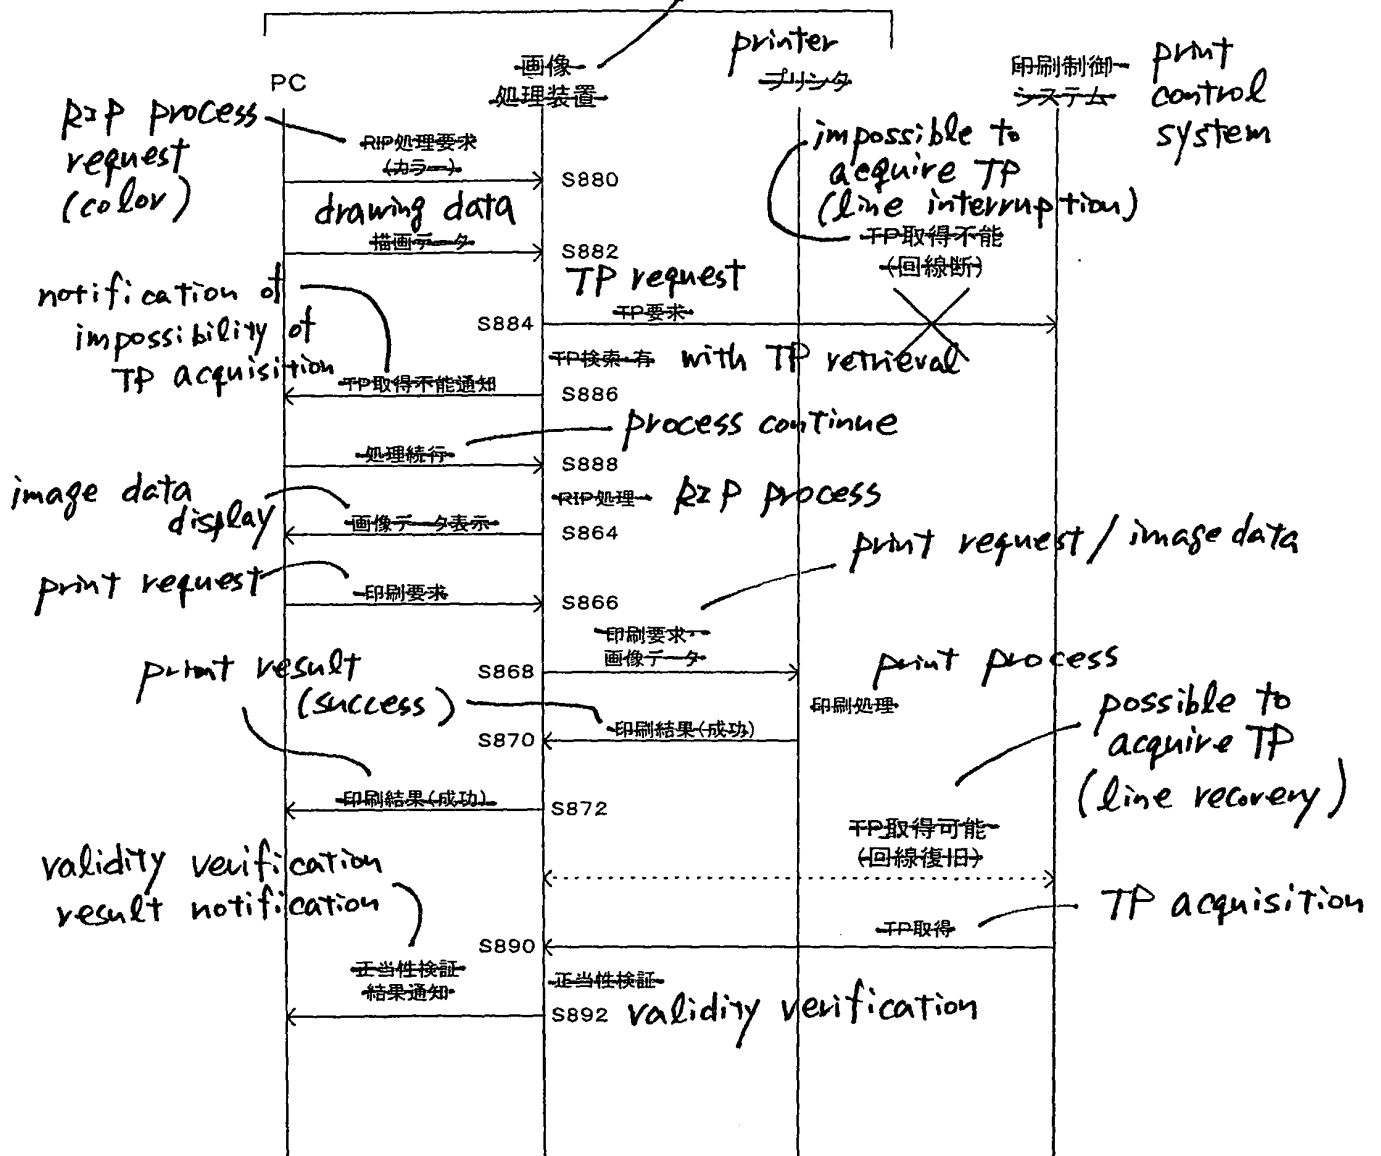 printer
画像
処理装置
プリンタ
PC
印刷制御
システム
print
control
system
RIP process
request
(color)
RIP処理要求
(カラー)
S880
impossible to
acquire TP
(line interruption)
TP取得不能
(回線断)
drawing data
描画データ
S882
TP request
TP要求
S884
notification of
impossibility of
TP acquisition
TP検索・有
with TP retrieval
TP取得不能通知
S886
process continue
処理続行
S888
image data
display
RIP処理
RIP process
画像データ表示
S864
print request / image data
print request
印刷要求
S866
印刷要求・
画像データ
S868
print process
印刷処理
print result
(success)
印刷結果(成功)
S870
possible to
acquire TP
(line recovery)
印刷結果(成功)
S872
TP取得可能
(回線復旧)
validity verification
result notification
TP acquisition
TP取得
S890
正当性検証
結果通知
正当性検証
S892
validity verification